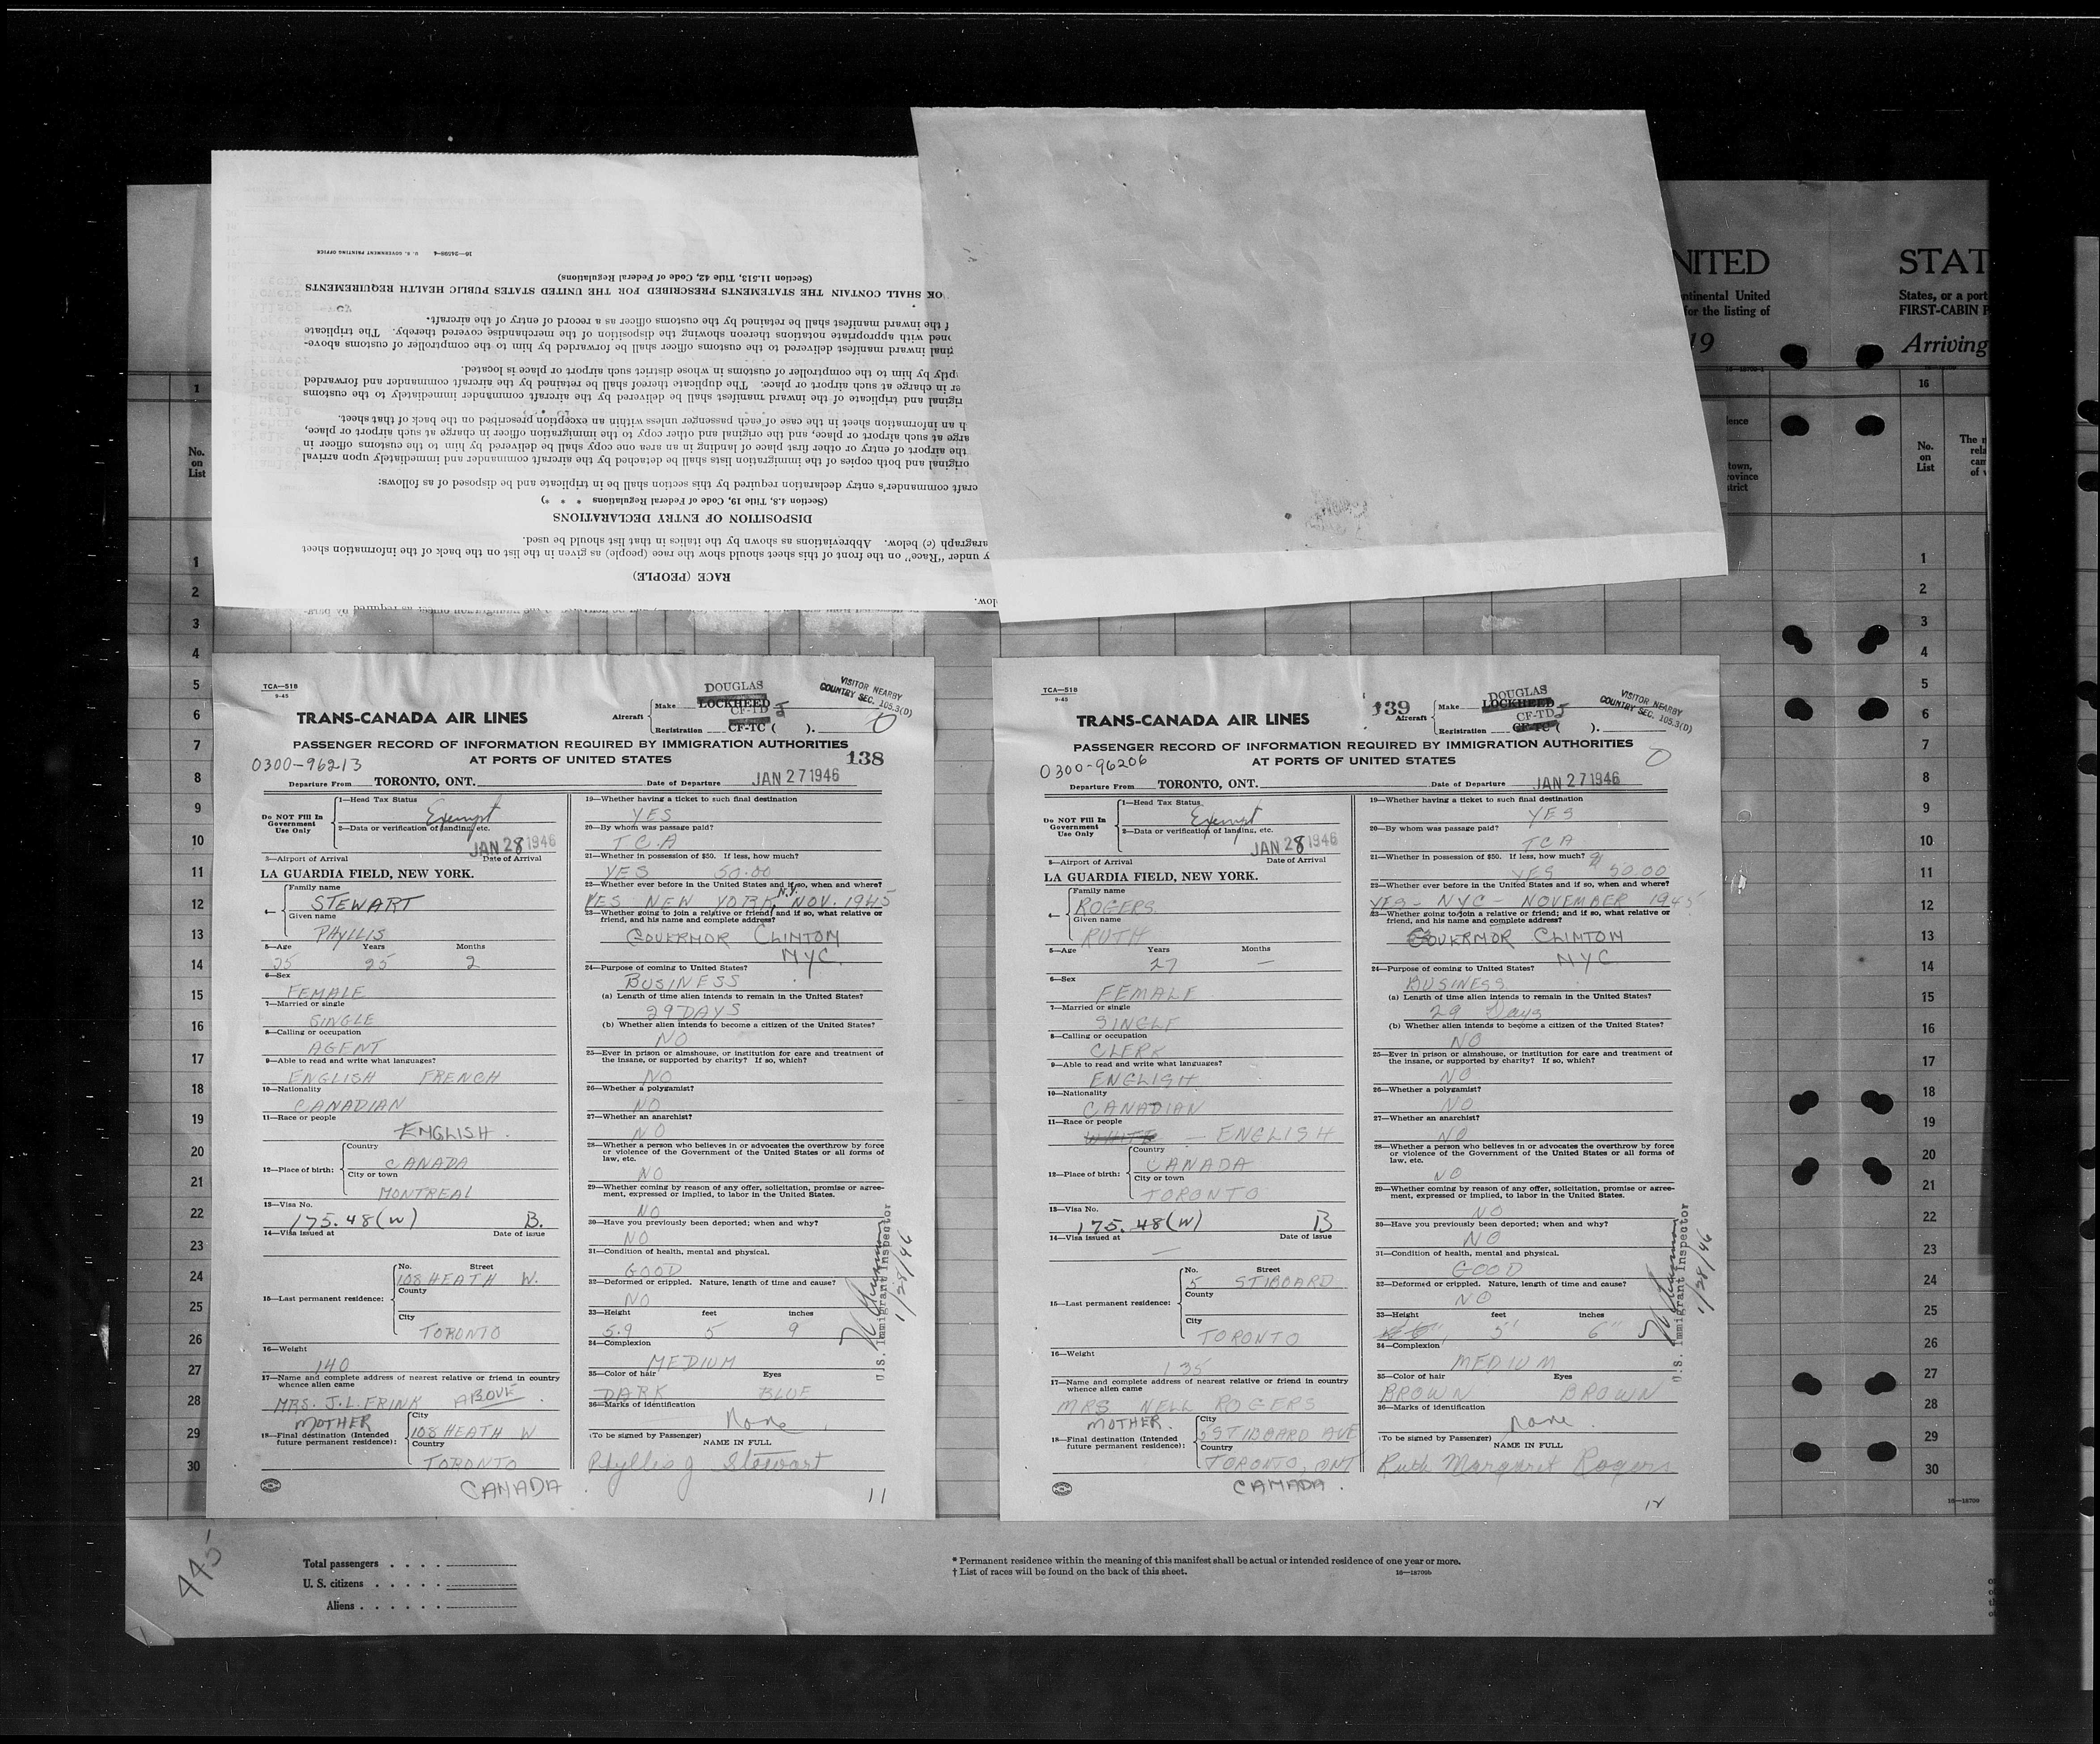 16—24598-4 U. S. GOVERNMENT PRINTING OFFICE
(Section 11.513, Title 42, Code of Federal Regulations)
OK SHALL CONTAIN THE STATEMENTS PRESCRIBED FOR THE UNITED STATES PUBLIC HEALTH REQUIREMENTS
f the inward manifest shall be retained by the customs officer as a record of entry of the aircraft.
oned with appropriate notations thereon showing the disposition of the merchandise covered thereby. The triplicate
ginal inward manifest delivered to the customs officer shall be forwarded by him to the comptroller of customs above-
ptly by him to the comptroller of customs in whose district such airport or place is located.
er in charge at such airport or place. The duplicate thereof shall be retained by the aircraft commander and forwarded
riginal and triplicate of the inward manifest shall be delivered by the aircraft commander immediately to the customs
h an information sheet in the case of each passenger unless within an exception prescribed on the back of that sheet.
arge at such airport or place, and the original and other copy to the immigration officer in charge at such airport or place,
the airport of entry or other first place of landing in an area one copy shall be delivered by him to the customs officer in
original and both copies of the immigration lists shall be detached by the aircraft commander and immediately upon arrival
craft commander's entry declaration required by this section shall be in triplicate and be disposed of as follows:
(Section 4.8, Title 19, Code of Federal Regulations * * *)
DISPOSITION OF ENTRY DECLARATIONS
aragraph (c) below. Abbreviations as shown by the italics in that list should be used.
y under "Race" on the front of this sheet should show the race (people) as given in the list on the back of the information sheet
RACE (PEOPLE)
low.
NITED
ntinental United
for the listing of
19
STAT
States, or a port
FIRST-CABIN P
Arriving
1
No.
on
List
1
2
3
4
5
6
7
8
9
10
11
12
13
14
15
16
17
18
19
20
21
22
23
24
25
26
27
28
29
30
TCA—518
9-45
TRANS-CANADA AIR LINES
Aircraft
Make
DOUGLAS
LOCKHEED
CF-TD J
Registration CF-TC ( ).
VISITOR NEARBY
COUNTRY SEC. 105.3(D)
0
PASSENGER RECORD OF INFORMATION REQUIRED BY IMMIGRATION AUTHORITIES
AT PORTS OF UNITED STATES
138
0300-96213
Departure From TORONTO, ONT. Date of Departure JAN 27 1946
Do NOT Fill In
Government
Use Only
1—Head Tax Status
Exempt
2—Data or verification of landing, etc.
JAN 28 1946
3—Airport of Arrival Date of Arrival
LA GUARDIA FIELD, NEW YORK.
4—
Family name
STEWART
Given name
PHYLLIS
5—Age Years Months
25 25 2
6—Sex
FEMALE
7—Married or single
SINGLE
8—Calling or occupation
AGENT
9—Able to read and write what languages?
ENGLISH FRENCH
10—Nationality
CANADIAN
11—Race or people
ENGLISH.
12—Place of birth:
Country
CANADA
City or town
MONTREAL
13—Visa No.
175.48(W) B.
14—Visa issued at Date of issue
15—Last permanent residence:
No. Street
108 HEATH W.
County
City
TORONTO
16—Weight
140
17—Name and complete address of nearest relative or friend in country
whence alien came
MRS. J.L. FRINK ABOVE
MOTHER
18—Final destination (Intended
future permanent residence):
City
108 HEATH W
Country
TORONTO
CANADA
19—Whether having a ticket to such final destination
YES
20—By whom was passage paid?
TCA
21—Whether in possession of $50. If less, how much?
YES 50.00
22—Whether ever before in the United States and if so, when and where?
YES NEW YORK, N.Y. NOV. 1945
23—Whether going to join a relative or friend; and if so, what relative or
friend, and his name and complete address?
GOVERNOR CLINTON
NYC.
24—Purpose of coming to United States?
BUSINESS
(a) Length of time alien intends to remain in the United States?
29 DAYS
(b) Whether alien intends to become a citizen of the United States?
NO
25—Ever in prison or almshouse, or institution for care and treatment of
the insane, or supported by charity? If so, which?
NO
26—Whether a polygamist?
NO
27—Whether an anarchist?
NO
28—Whether a person who believes in or advocates the overthrow by force
or violence of the Government of the United States or all forms of
law, etc.
NO
29—Whether coming by reason of any offer, solicitation, promise or agree-
ment, expressed or implied, to labor in the United States.
NO
30—Have you previously been deported; when and why?
NO
31—Condition of health, mental and physical.
GOOD
32—Deformed or crippled. Nature, length of time and cause?
NO
33—Height feet inches
5.9 5 9
34—Complexion
MEDIUM
35—Color of hair Eyes
DARK BLUE
36—Marks of identification
None
(To be signed by Passenger)
NAME IN FULL
Phyllis J Stewart
11
U.S. Immigrant Inspector
1/28/46
TCA—518
9-45
TRANS-CANADA AIR LINES
139
Aircraft
Make
DOUGLAS
LOCKHEED
CF-TD J
Registration CF-TC ( ).
VISITOR NEARBY
COUNTRY SEC. 105.3(D)
PASSENGER RECORD OF INFORMATION REQUIRED BY IMMIGRATION AUTHORITIES
AT PORTS OF UNITED STATES
0
0300-96206
Departure From TORONTO, ONT. Date of Departure JAN 27 1946
Do NOT Fill In
Government
Use Only
1—Head Tax Status
Exempt
2—Data or verification of landing, etc.
JAN 28 1946
3—Airport of Arrival Date of Arrival
LA GUARDIA FIELD, NEW YORK.
4—
Family name
ROGERS
Given name
RUTH
5—Age Years Months
27 —
6—Sex
FEMALE
7—Married or single
SINGLE
8—Calling or occupation
CLERK
9—Able to read and write what languages?
ENGLISH
10—Nationality
CANADIAN
11—Race or people
WHITE — ENGLISH
12—Place of birth:
Country
CANADA
City or town
TORONTO
13—Visa No.
175.48(W) B
14—Visa issued at Date of issue
—
15—Last permanent residence:
No. Street
5 STIBOARD
County
City
TORONTO
16—Weight
135
17—Name and complete address of nearest relative or friend in country
whence alien came
MRS NELL ROGERS
MOTHER.
18—Final destination (Intended
future permanent residence):
City
5 STIBOARD AVE
Country
TORONTO, ONT
CANADA.
19—Whether having a ticket to such final destination
YES
20—By whom was passage paid?
TCA
21—Whether in possession of $50. If less, how much?
YES $50.00
22—Whether ever before in the United States and if so, when and where?
YES - NYC - NOVEMBER 1945
23—Whether going to join a relative or friend; and if so, what relative or
friend, and his name and complete address?
GOVERNOR CLINTON
NYC
24—Purpose of coming to United States?
BUSINESS.
(a) Length of time alien intends to remain in the United States?
29 Days
(b) Whether alien intends to become a citizen of the United States?
NO
25—Ever in prison or almshouse, or institution for care and treatment of
the insane, or supported by charity? If so, which?
NO
26—Whether a polygamist?
NO
27—Whether an anarchist?
NO
28—Whether a person who believes in or advocates the overthrow by force
or violence of the Government of the United States or all forms of
law, etc.
NO
29—Whether coming by reason of any offer, solicitation, promise or agree-
ment, expressed or implied, to labor in the United States.
NO
30—Have you previously been deported; when and why?
NO
31—Condition of health, mental and physical.
GOOD
32—Deformed or crippled. Nature, length of time and cause?
NO
33—Height feet inches
5' 6"
34—Complexion
MEDIUM
35—Color of hair Eyes
BROWN BROWN
36—Marks of identification
None.
(To be signed by Passenger)
NAME IN FULL
Ruth Margaret Rogers
12
U.S. Immigrant Inspector
1/28/46
lence
town,
rovince
strict
16
No.
on
List
The n
rela
can
of v
1
2
3
4
5
6
7
8
9
10
11
12
13
14
15
16
17
18
19
20
21
22
23
24
25
26
27
28
29
30
16—18709
445
Total passengers . . . .
U. S. citizens . . . . .
Aliens . . . . . .
* Permanent residence within the meaning of this manifest shall be actual or intended residence of one year or more.
† List of races will be found on the back of this sheet.
16—18709b